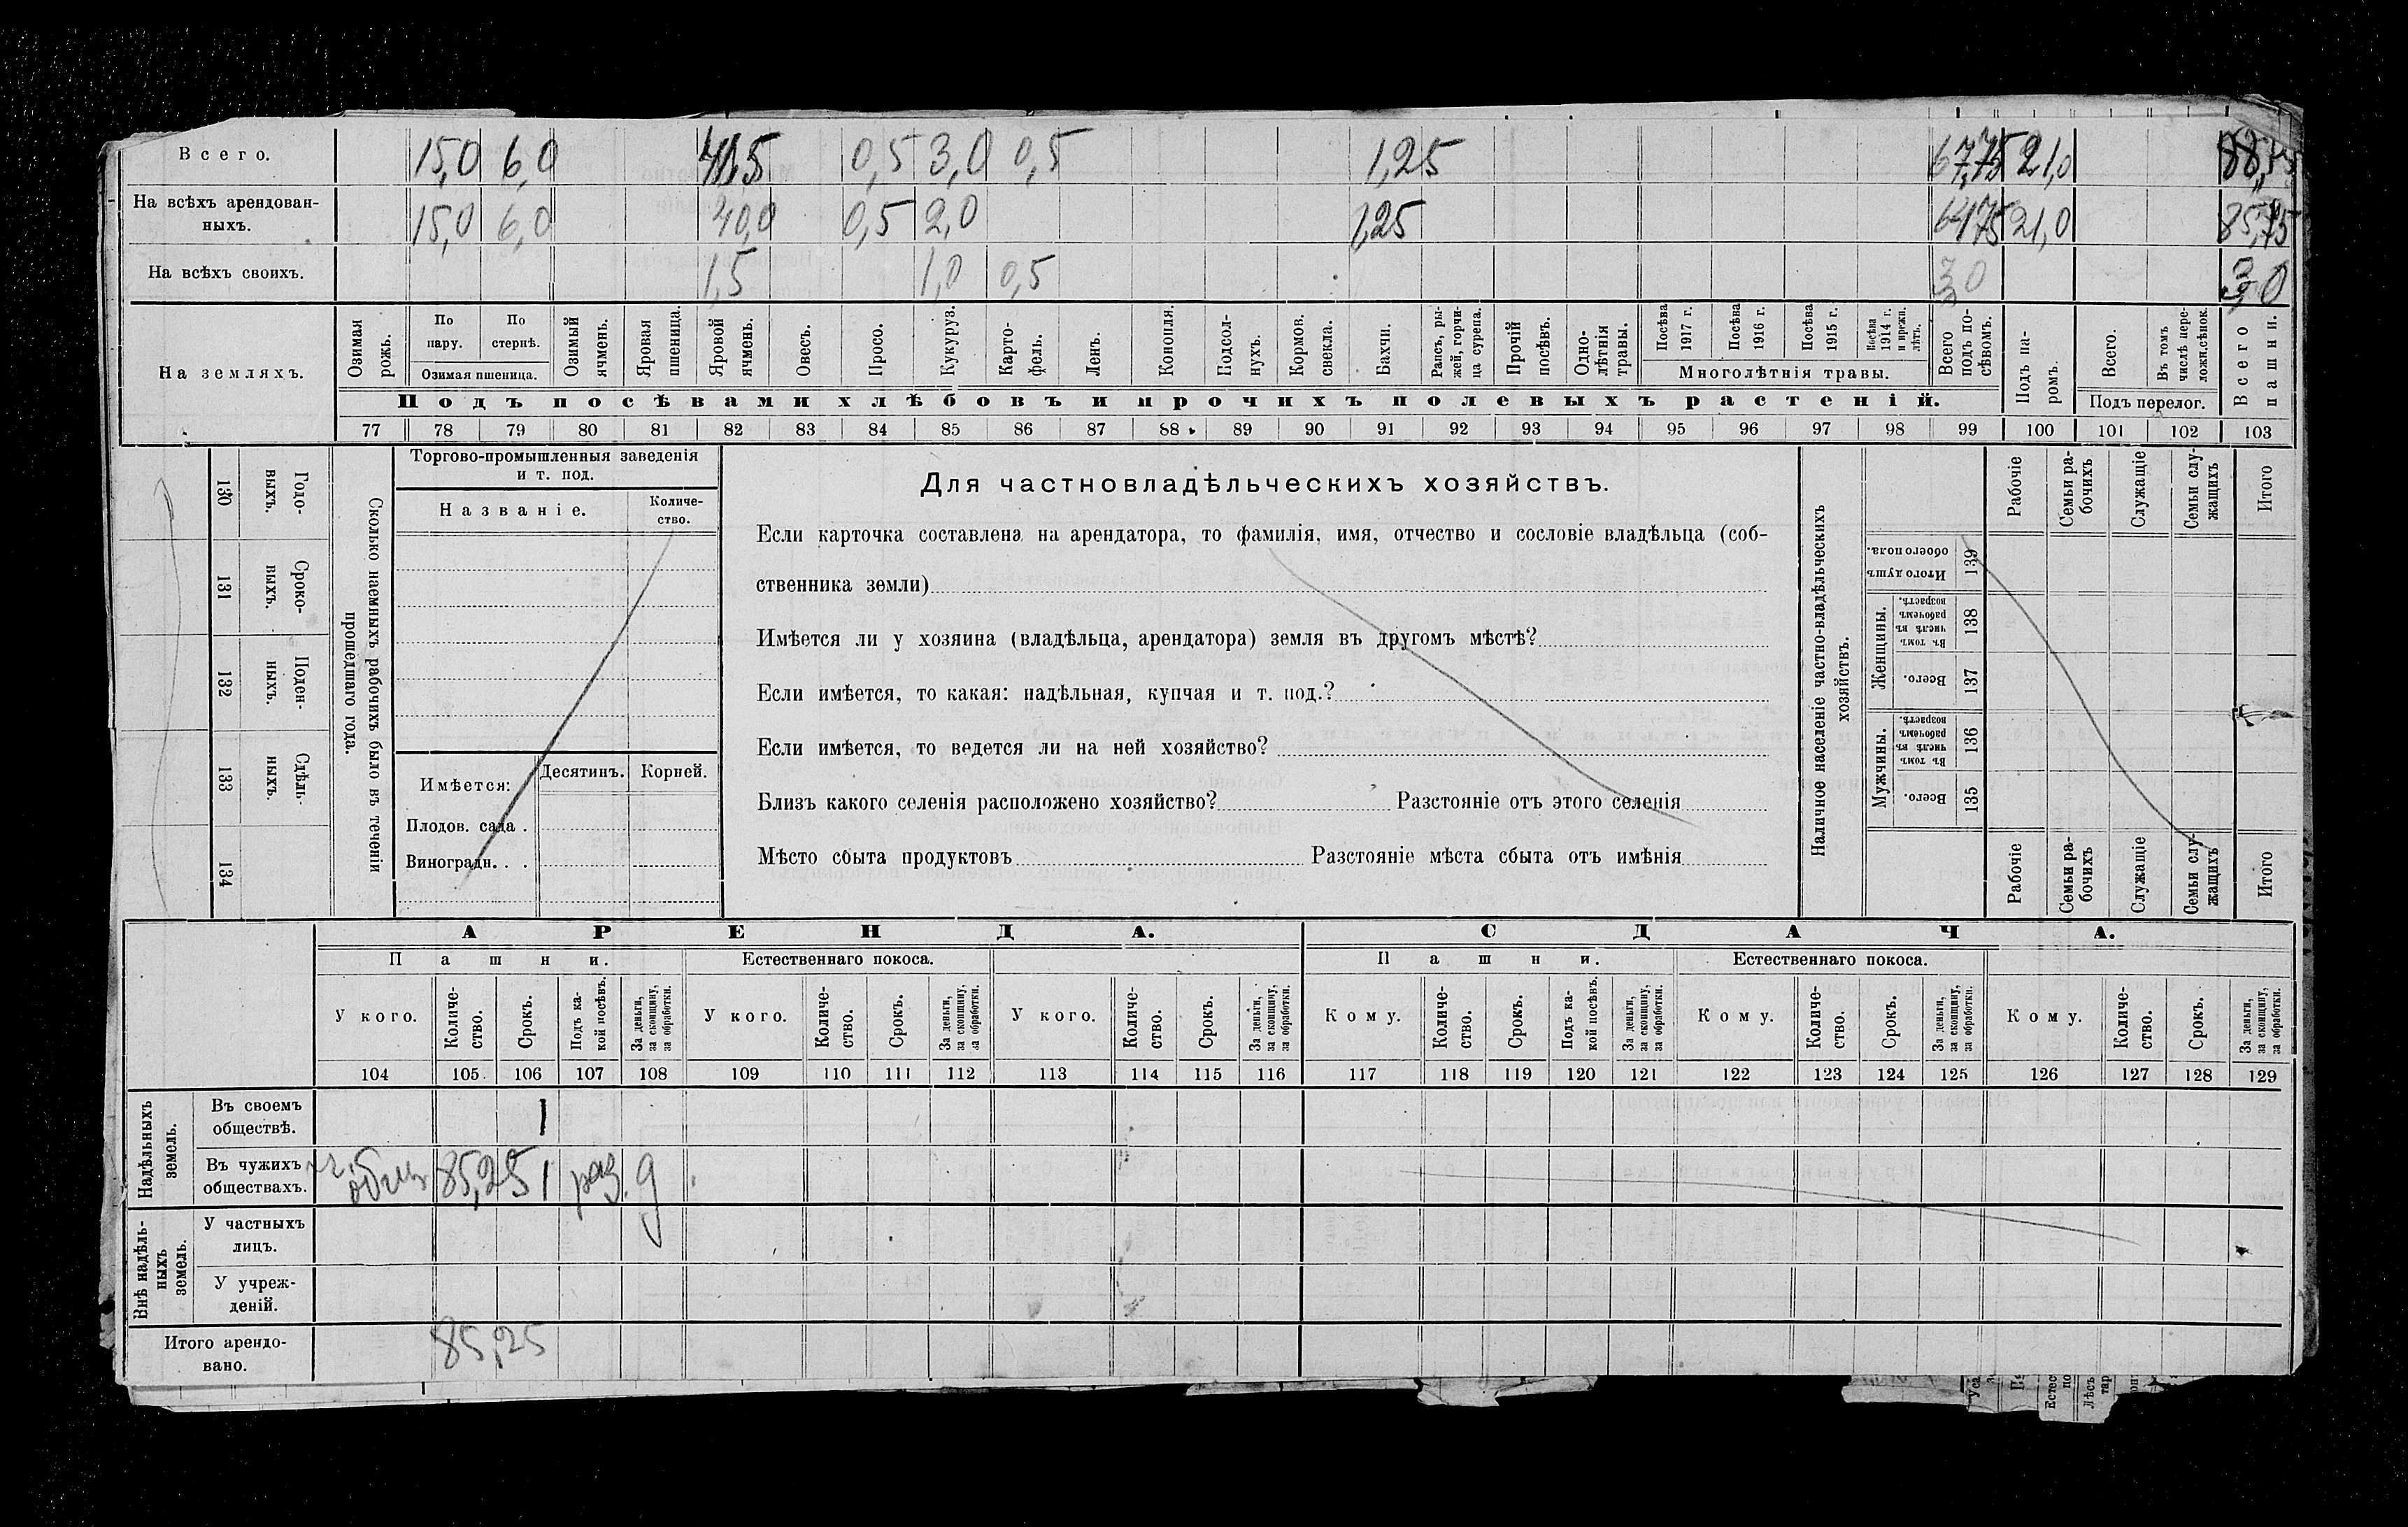 Всего. 15,0 6,0 41,5 0,5 3,0 0,5 1,25 67,75 21,0 88,75
На всѣхъ арендован-
ныхъ. 15,0 6,0 40,0 0,5 2,0 1,25 64,75 21,0 85,75
На всѣхъ своихъ. 1,5 1,0 0,5 3,0 3,0
На земляхъ.
Озимая рожь.
По пару.
По стернѣ.
Озимая пшеница.
Озимый ячмень.
Яровая пшеница.
Яровой ячмень.
Овесъ.
Просо.
Кукуруз.
Карто-
фель.
Ленъ.
Конопля.
Подсол-
нухъ.
Кормов.
свекла.
Бахчи.
Рапсъ, ры-
жей, горчи-
ца сурепа.
Прочій
посѣвъ.
Одно-
лѣтнія
травы.
Посѣва
1917 г.
Посѣва
1916 г.
Посѣва
1915 г.
Посѣва
1914 г.
и прежн.
лѣтъ.
Многолѣтнія травы.
Всего
подъ по-
сѣвомъ.
Подъ па-
ромъ.
Всего.
Въ томъ
числѣ пере-
ложн.сѣнок.
Подъ перелог.
Всего
пашни.
Подъ посѣвами хлѣбовъ и прочихъ полевыхъ растеній.
77 78 79 80 81 82 83 84 85 86 87 88 89 90 91 92 93 94 95 96 97 98 99 100 101 102 103
Годо-
выхъ.
130
Сроко-
выхъ.
131
Поден-
ныхъ.
132
Сдѣль-
ныхъ.
133
134
Сколько наемныхъ рабочихъ было въ теченіи
прошедшаго года.
Торгово-промышленныя заведенія
и т. под.
Названіе.
Количе-
ство.
Имѣется: Десятинъ. Корней.
Плодов. сада .
Виноградн. . .
Для частновладѣльческихъ хозяйствъ.
Если карточка составлена на арендатора, то фамилія, имя, отчество и сословіе владѣльца (соб-
ственника земли)
Имѣется ли у хозяина (владѣльца, арендатора) земля въ другомъ мѣстѣ?
Если имѣется, то какая: надѣльная, купчая и т. под.?
Если имѣется, то ведется ли на ней хозяйство?
Близъ какого селенія расположено хозяйство? Разстояніе отъ этого селенія
Мѣсто сбыта продуктовъ Разстояніе мѣста сбыта отъ имѣнія
Наличное населеніе частно-владѣльческихъ
хозяйствъ.
Рабочіе
Семьи ра-
бочихъ
Служащіе
Семьи слу-
жащихъ
Итого
Итого душъ
обоего пола.
139
Женщины.
Въ томъ
числѣ въ
рабочемъ
возрастѣ.
138
Всего.
137
Мужчины.
Въ томъ
числѣ въ
рабочемъ
возрастѣ.
136
Всего.
135
Рабочіе
Семьи ра-
бочихъ
Служащіе
Семьи слу-
жащихъ
Итого
АРЕНДА. СДАЧА.
Пашни. Естественнаго покоса. Пашни. Естественнаго покоса.
У кого.
Количе-
ство.
Срокъ.
Подъ ка-
кой посѣвъ.
За деньги,
за скопщину,
за обработки.
У кого.
Количе-
ство.
Срокъ.
За деньги,
за скопщину,
за обработки.
У кого.
Количе-
ство.
Срокъ.
За деньги,
за скопщину,
за обработки.
Кому.
Количе-
ство.
Срокъ.
Подъ ка-
кой посѣвъ.
За деньги,
за скопщину,
за обработки.
Кому.
Количе-
ство.
Срокъ.
За деньги,
за скопщину,
за обработки.
Кому.
Количе-
ство.
Срокъ.
За деньги,
за скопщину,
за обработки.
104 105 106 107 108 109 110 111 112 113 114 115 116 117 118 119 120 121 122 123 124 125 126 127 128 129
Надѣльныхъ
земель.
Въ своемъ
обществѣ.
Въ чужихъ
обществахъ. общ 85,25 1 раз. д
Внѣ надѣль-
ныхъ
земель.
У частныхъ
лицъ.
У учреж-
деній.
Итого арендо-
вано. 85,25